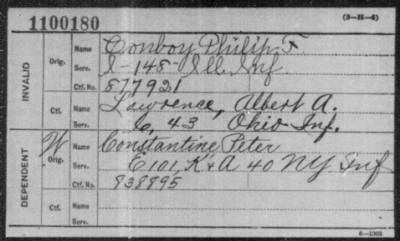 1100180
(3-H-4)
INVALID
Orig.
Name Conboy Philip F
Serv. I-148- Ill Inf
Ctf. No. 877921
Ctf.
Name Lawrence, Albert A.
Serv. C, 43 Ohio Inf.
DEPENDENT
W
Orig.
Name Constantine Peter
Serv. E 101, K & A 40 NY Inf
Ctf. No. 838895
Ctf.
Name
Serv.